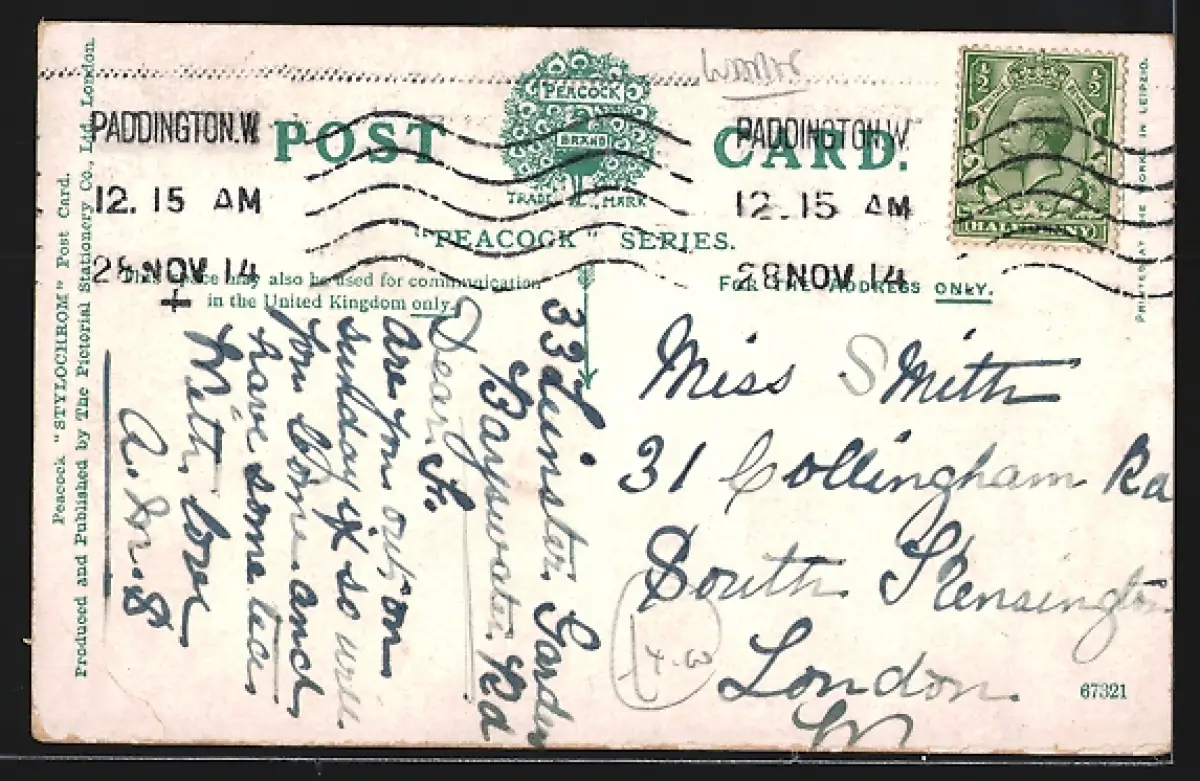 Peacock "STYLOCHROM" Post Card.
Produced and Published by The Pictorial Stationery Co., Ltd. London.
PADDINGTON.W
12. 15 AM
28 NOV 14
+
POST CARD.
PEACOCK
BRAND
TRADE MARK
"PEACOCK" SERIES.
PADDINGTON.W
12. 15 AM
28 NOV 14
½ ½
HALFPENNY
PRINTED AT THE WORKS IN LEIPZIG.
This space may also be used for communication
in the United Kingdom only.
FOR THE ADDRESS ONLY.
33 Leinster Garden
Bayswater Rd
Dear
Are you out on
sunday if so will
you come and
have some tea
With love
A.
Miss Smith
31 Collingham Rd
South Kensington
London
67321